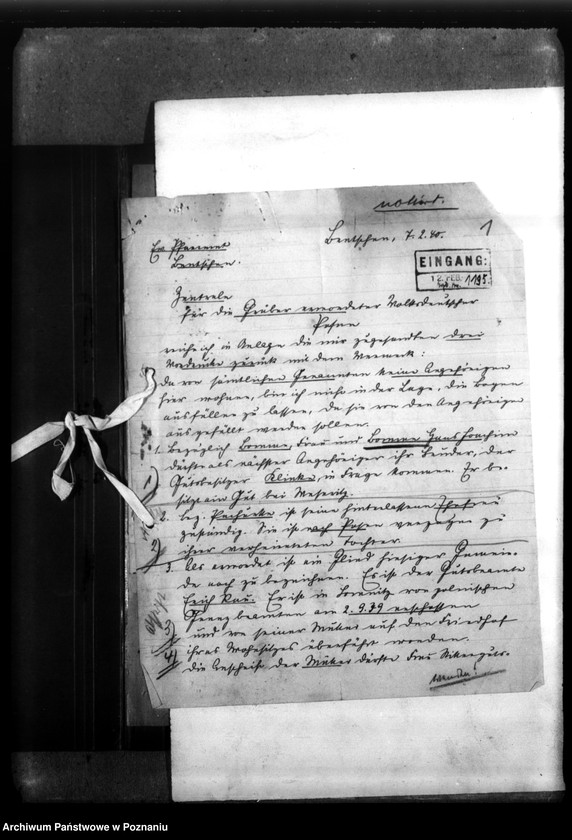 notiert.
1
Ev. Pfarramt
Bentschen.
Bentschen, 7.2.40.
EINGANG:
12. FEB. 1195
Zentrale
für die Gräber ermordeter Volksdeutscher
Posen
reiche ich in Anlage die mir zugesandten drei
Vordrucke zurück mit dem Vermerk:
da von sämtlichen Genannten keine Angehörigen
hier wohnen, bin ich nicht in der Lage, die Bogen
ausfüllen zu lassen, da sie von den Angehörigen
ausgefüllt werden sollen.
1. Bezüglich Bomme, Frau und Bomme Hans Joachim
dürfte als nächster Angehöriger ihr Bruder, der
Gutsbesitzer Klinke, in Frage kommen. Er be-
sitzt ein Gut bei Meseritz.
2. bez. ist seine hinterlassene Ehefrau
zuständig. Sie ist nach Posen verzogen zu
ihrer verheirateten Tochter.
3. Als ermordet ist ein Glied hiesiger Gemein-
de noch zu bezeichnen. Es ist der Gutsbeamte
Erich Rau. Er ist in von polnischen
Grenzbeamten am 2.9.39 erschossen
und von seiner Mutter auf den Friedhof
ihres Wohnsitzes überführt worden.
Die Anschrift der Mutter dürfte Frau
wenden!
1)
2)
3)
4)
Archiwum Państwowe w Poznaniu